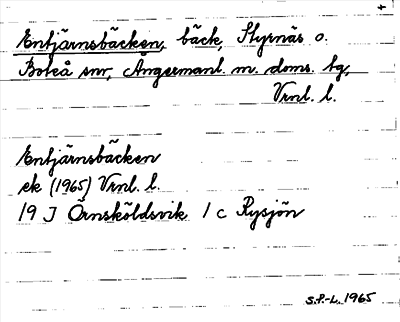 +
Entjärnsbäcken, bäck, Styrnäs o.
Boteå snr, Ångermanl. m. doms. bg,
Vrnl. l.
Entjärnsbäcken
ek (1965) Vrnl. l.
19 J Örnsköldsvik 1 c Rysjön
S.P.-L. 1965